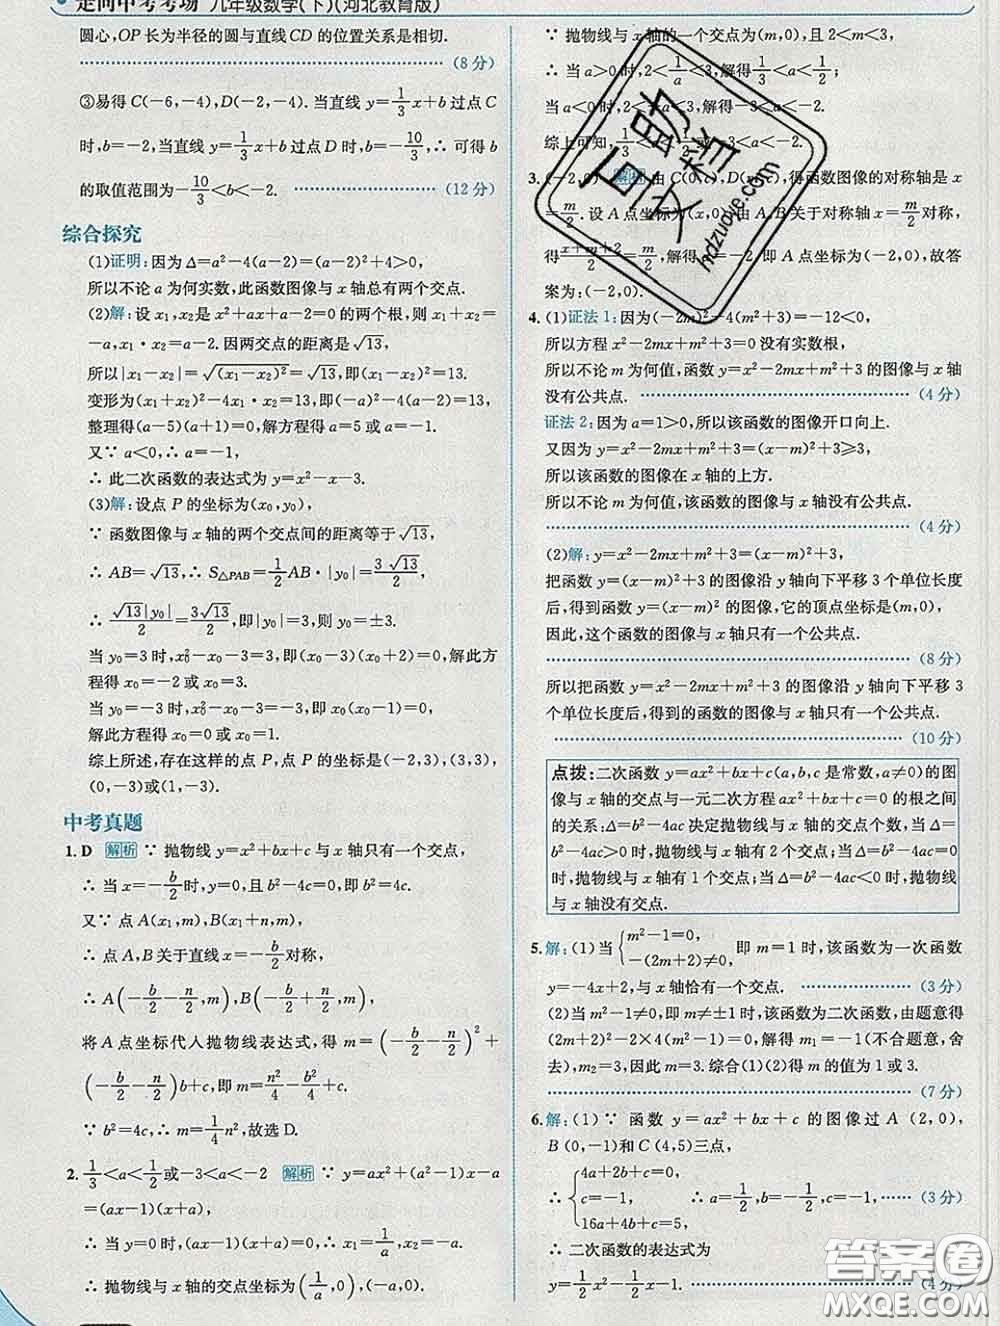 走向中考考场 九年级数学(下)(河北教育版)
圆心,OP长为半径的圆与直线CD的位置关系是相切.
(8分)
③易得C(-6,-4),D(-2,-4).当直线y=1/3x+b过点C
时,b=-2,当直线y=1/3x+b过点D时,b=-10/3,∴可得b
的取值范围为-10/3<b<-2. (12分)
综合探究
(1)证明:因为Δ=a²-4(a-2)=(a-2)²+4>0,
所以不论a为何实数,此函数图像与x轴总有两个交点.
(2)解:设x₁,x₂是x²+ax+a-2=0的两个根,则x₁+x₂=
-a,x₁·x₂=a-2.因两交点的距离是√13,
所以|x₁-x₂|=√(x₁-x₂)²=√13,即(x₁-x₂)²=13.
变形为(x₁+x₂)²-4x₁·x₂=13,即(-a)²-4(a-2)=13,
整理得(a-5)(a+1)=0,解方程得a=5或a=-1.
又∵a<0,∴a=-1,
∴此二次函数的表达式为y=x²-x-3.
(3)解:设点P的坐标为(x₀,y₀),
∵函数图像与x轴的两个交点间的距离等于√13,
∴AB=√13,∴S△PAB=1/2AB·|y₀|=3√13/2,
∴√13|y₀|/2=3√13/2,即|y₀|=3,则y₀=±3.
当y₀=3时,x₀²-x₀-3=3,即(x₀-3)(x₀+2)=0,解此方
程得x₀=-2或x₀=3.
当y₀=-3时,x₀²-x₀-3=-3,即x₀(x₀-1)=0,
解此方程得x₀=0或x₀=1.
综上所述,存在这样的点P,点P的坐标是(-2,3),(3,3),
(0,-3)或(1,-3).
中考真题
1. D 解析 ∵抛物线y=x²+bx+c与x轴只有一个交点,
∴当x=-b/2时,y=0,且b²-4c=0,即b²=4c.
又∵点A(x₁,m),B(x₁+n,m),
∴点A,B关于直线x=-b/2对称,
∴A(-b/2-n/2,m),B(-b/2+n/2,m),
将A点坐标代入抛物线表达式,得m=(-b/2-n/2)²+
(-b/2-n/2)b+c,即m=n²/4-b²/4+c.
∵b²=4c,∴m=1/4n²,故选D.
2. 1/3<a<1/2或-3<a<-2 解析 ∵y=ax²+(a²-1)x-a
=(ax-1)(x+a),
∴当y=0时,(ax-1)(x+a)=0,∴x₁=1/a,x₂=-a.
∴抛物线与x轴的交点坐标为(1/a,0),(-a,0).
∵抛物线与x轴的一个交点为(m,0),且2<m<3,
∴当a>0时,2<1/a<3,解得1/3<a<1/2;
当a<0时,2<-a<3,解得-3<a<-2.
综上可知,1/3<a<1/2或-3<a<-2.
3. (-2,0) 解析 由C(0,c),D(m,c),得函数图像的对称轴是x
=m/2.设A点坐标为(x,0),由A,B关于对称轴x=m/2对称,
得(x+m+2)/2=m/2,解得x=-2,即A点坐标为(-2,0),故答
案为:(-2,0).
4. (1)证法1:因为(-2m)²-4(m²+3)=-12<0,
所以方程x²-2mx+m²+3=0没有实数根,
所以不论m为何值,函数y=x²-2mx+m²+3的图像与x轴
没有公共点. (4分)
证法2:因为a=1>0,所以该函数的图像开口向上.
又因为y=x²-2mx+m²+3=(x-m)²+3≥3,
所以该函数的图像在x轴的上方.
所以不论m为何值,该函数的图像与x轴没有公共点.
(4分)
(2)解:y=x²-2mx+m²+3=(x-m)²+3,
把函数y=(x-m)²+3的图像沿y轴向下平移3个单位长度
后,得到函数y=(x-m)²的图像,它的顶点坐标是(m,0),
因此,这个函数的图像与x轴只有一个公共点.
(8分)
所以把函数y=x²-2mx+m²+3的图像沿y轴向下平移3
个单位长度后,得到的函数的图像与x轴只有一个公共点.
(10分)
点拨:二次函数y=ax²+bx+c(a,b,c是常数,a≠0)的图
像与x轴的交点与一元二次方程ax²+bx+c=0的根之间
的关系:Δ=b²-4ac决定抛物线与x轴的交点个数,当Δ=
b²-4ac>0时,抛物线与x轴有2个交点;当Δ=b²-4ac=0时,
抛物线与x轴有1个交点;当Δ=b²-4ac<0时,抛物线
与x轴没有交点.
5. 解:(1)当{m²-1=0,-(2m+2)≠0,即m=1时,该函数为一次函数
y=-4x+2,与x轴恰有一个交点. (3分)
(2)当m²-1≠0,即m≠±1时,该函数为二次函数,由题意得
(2m+2)²-2×4(m²-1)=0,解得m₁=-1(不合题意,舍
去),m₂=3.综合(1)(2)得m的值为1或3.
(7分)
6. 解:(1)∵函数y=ax²+bx+c的图像过A(2,0),
B(0,-1)和C(4,5)三点,
∴{4a+2b+c=0,c=-1,16a+4b+c=5, ∴a=1/2,b=-1/2,c=-1, (3分)
∴二次函数的表达式为
y=1/2x²-1/2x-1. (4分)
百助文档
hdzuoye.com
答案圈
MXQE.COM